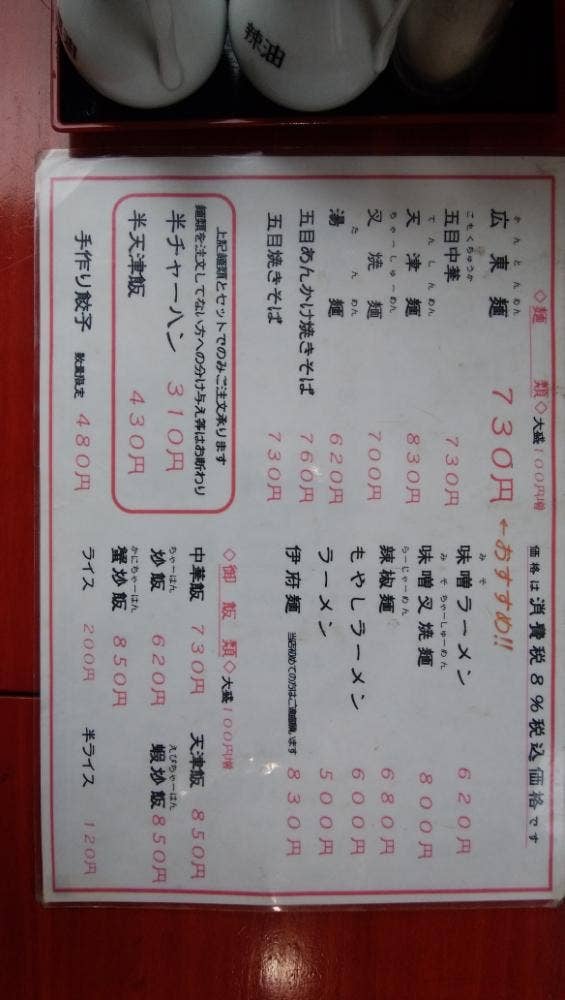 辣油
◇麺類◇大盛100円増
価格は消費税8%税込価格です
かんとんめん
広東麺 730円 ←おすすめ!!
ごもくちゅうか
五目中華 730円
てんしんめん
天津麺 830円
ちゃーしゅーめん
叉焼麺 700円
たんめん
湯麺 620円
五目あんかけ焼きそば 760円
五目焼きそば 730円
みそ
味噌ラーメン 620円
みそちゃーしゅーめん
味噌叉焼麺 800円
らーじゃーめん
辣椒麺 680円
もやしラーメン 600円
ラーメン 500円
伊府麺 830円
上記麺類とセットでのみご注文承ります
麺類を注文してない方への分け与え等はお断わり
半チャーハン 310円
半天津飯 430円
手作り餃子 数量限定 480円
◇御飯類◇大盛100円増
中華飯 730円 天津飯 850円
ちゃーはん えびちゃーはん
炒飯 620円 蝦炒飯 850円
かにちゃーはん
蟹炒飯 850円
ライス 200円 半ライス 120円